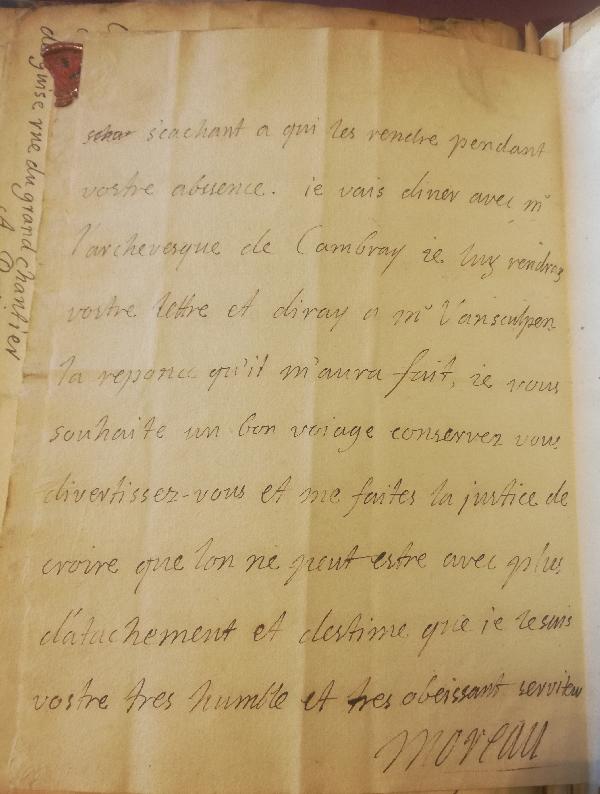 scachant a qui les rendre pendant
vostre abssence. ie vais diner avec mr
l'archevesque de Cambray ie luy rendray
vostre lettre et diray a mr Vansculpen
la reponce qu'il m'aura fait, ie vous
souhaite un bon voiage conservez vous
divertissez-vous et me faites la justice de
croire que lon ne peut estre avec plus
d'atachement et destime que ie le suis
vostre tres humble et tres obeissant serviteur
Moreau
de guise rue du grand chantier